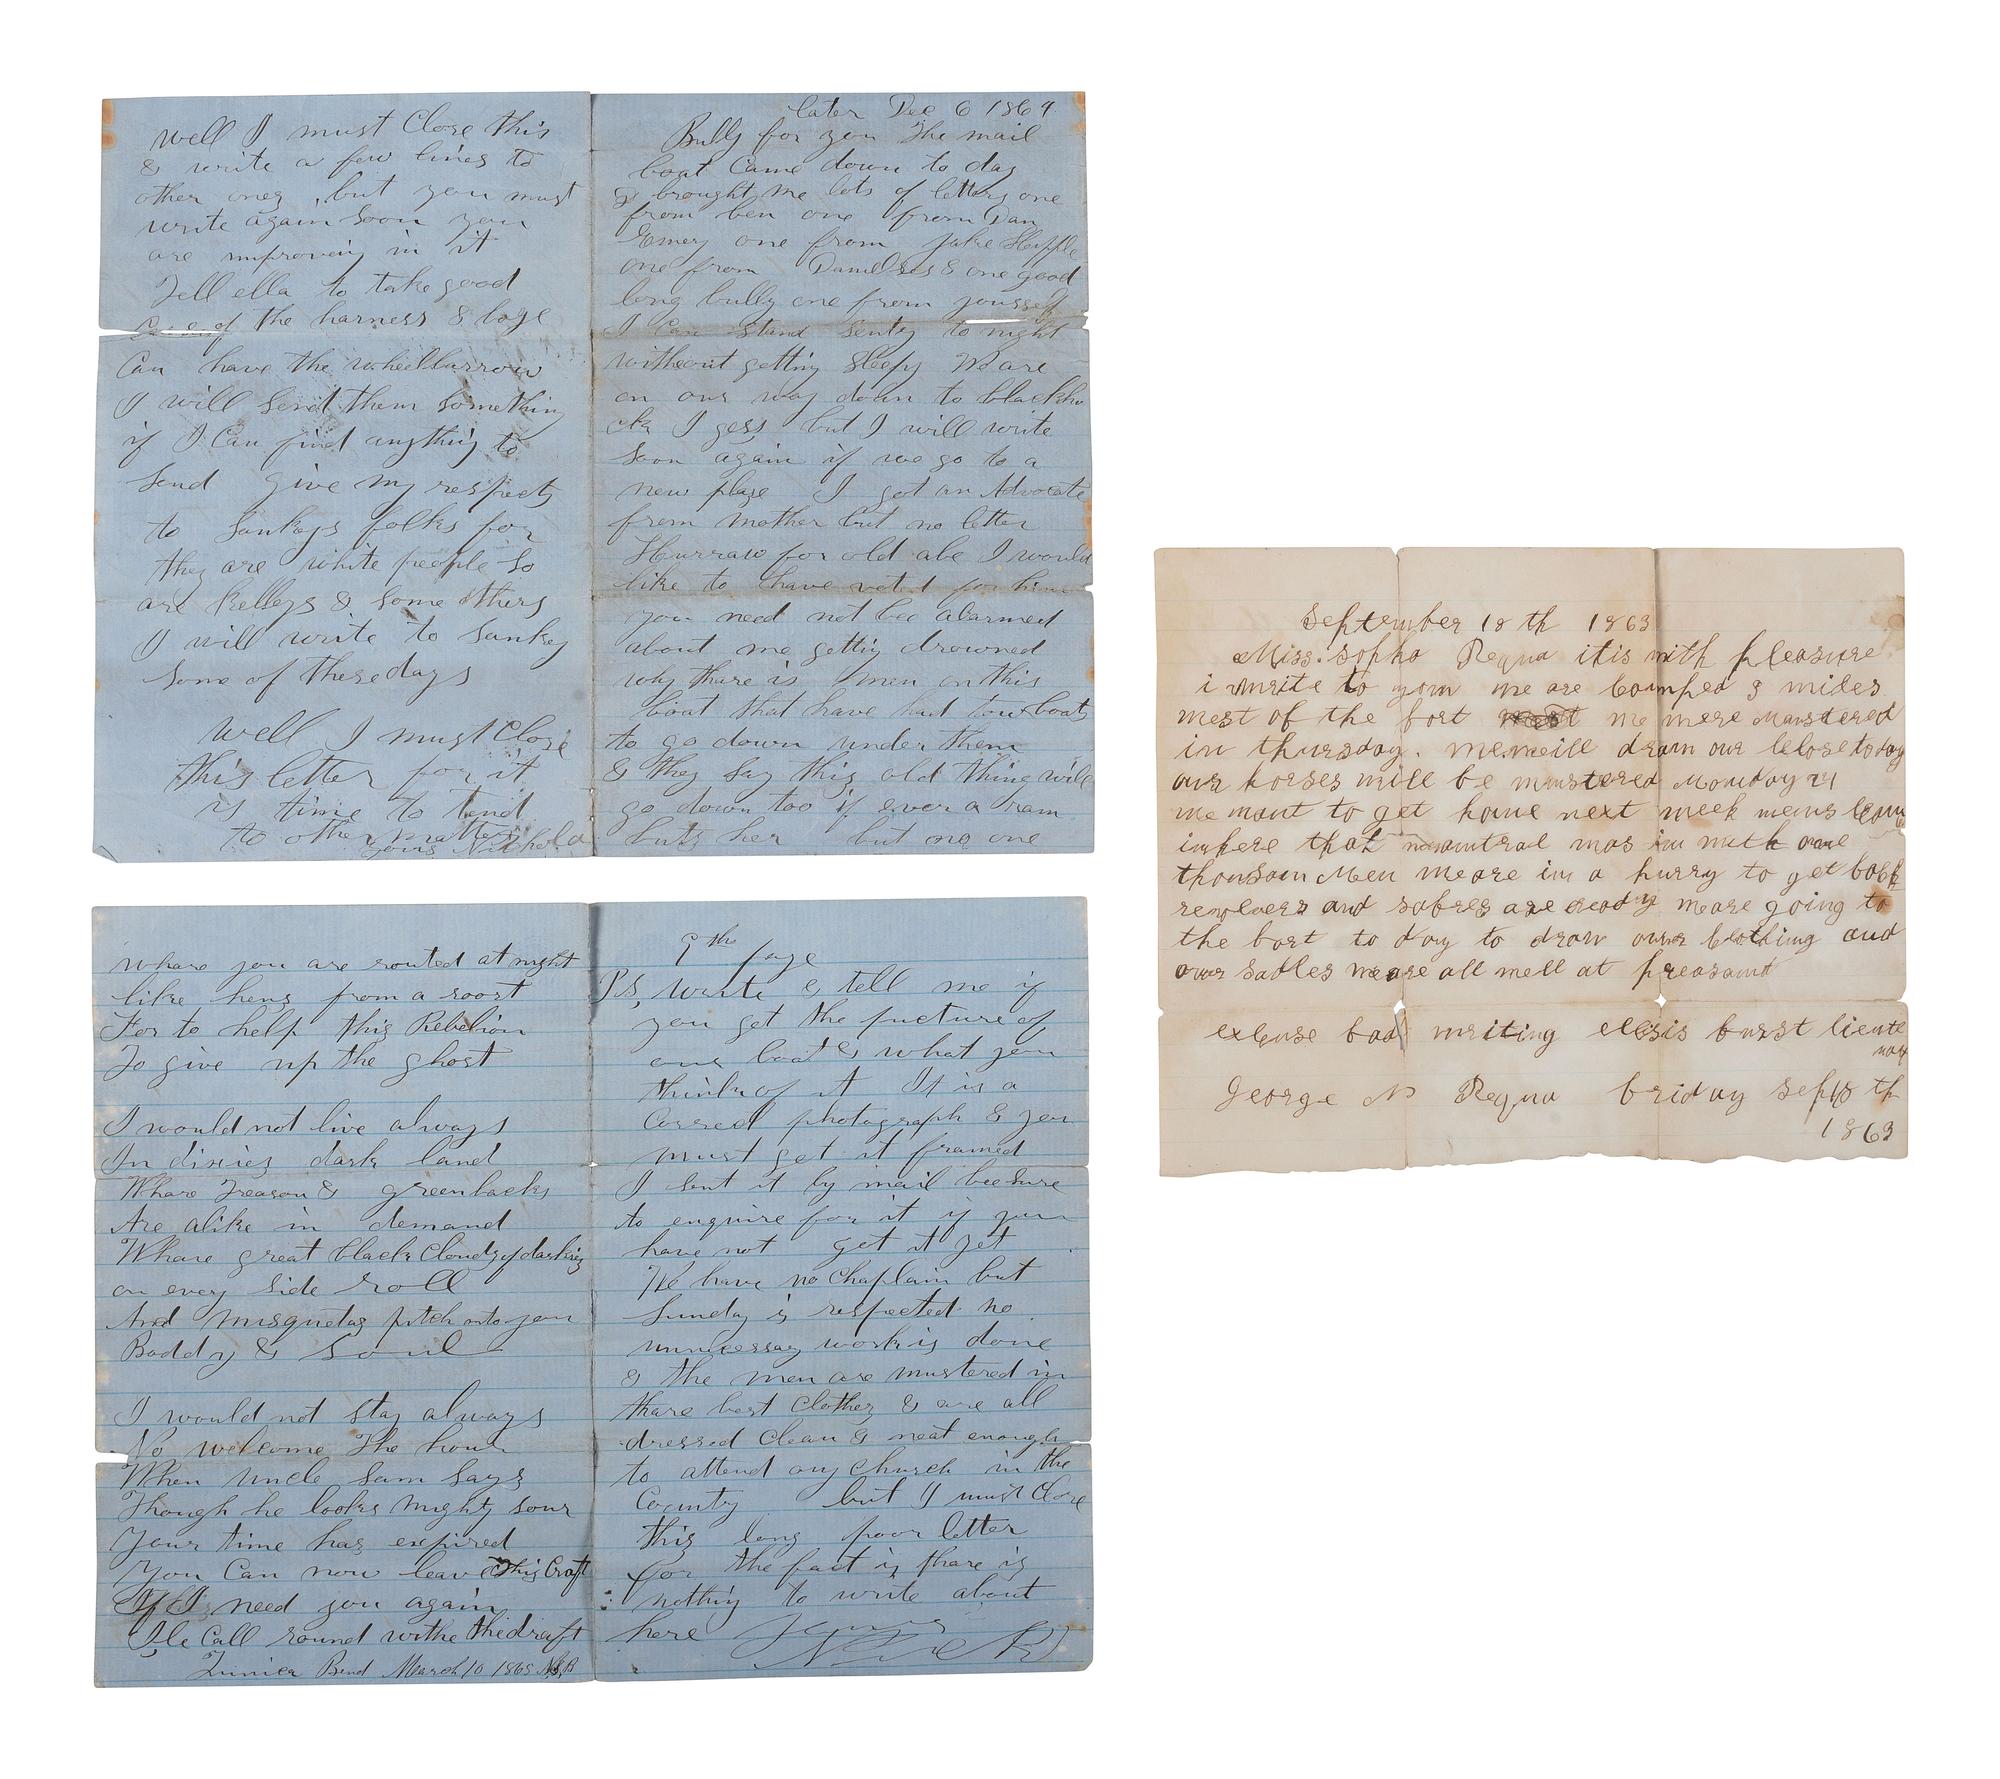 well I must Close this
& write a few lines to
other ones, but you must
write again soon you
are improveing in it
Tell ella to take good
Care of the harness &
Can have the wheelburrow
I will send them something
if I Can find anything to
send give my respects
to Sankeys folks for
they are white people so
are Kelleys & some others
I will write to Sankey
some of these days
well I must Close
this letter for it
is time to tend
to other matters
yours
later Dec 6 1864
Bully for you The mail
boat Came down to day
& brought me lots of letters one
from ben one from Dan
Emery one from Jake
one from & one good
long bully one from yousself
I Can stand senty to night
without getting sleepy We are
on our way down to blackha
ck I gess but I will write
soon again if we go to a
new plase I got an Advocate
from mother but no letter
Hurraw for old abe I would
like to have voted for him
you need not bee alarmed
about me getting drowned
why thare is men on this
boat that have had tow boats
to go down under them
& they say this old thing will
go down too if ever a ram
buts her but one one
Whare you are routed at night
like hens from a roost
For to help this Rebelion
To give up the ghost
I would not live always
In dixies dark land
Whare Treason & greenbacks
Are alike in demand
Whare great black Clouds of darkies
on every side roll
And musquetas pitch into you
Boddy & soul
I would not stay always
No welcome The hour
When uncle Sam says
Though he looks mighty sour
Your time has expired
You Can now leave This Craft
If I need you again
Ile Call round withe the draft
Tunica Bend March 10 1865 N.B.R
9th page
P.S, write & tell me if
you get the picture of
our boat & what you
think of it It is a
Correct photograph & you
must get it framed
I sent it by mail bee sure
to enquire for it if you
have not get it yet
We have no Chaplain but
Sunday is respected no
unnecessay work is done
& the men are mustered in
thare best Clothes & are all
dressed Clean & neat enough
to attend any Church in the
Country but I must Close
this long poor letter
for the fact is thare is
nothing to write about
here Yours
September 18 th 1863
Miss. sopha Requa it is with pleasure
i write to you we are camped 3 miles
west of the fort we were Mustered
in thursday. we will draw our close today
our horses will be mustered Monday 21
we want to get home next week
that was in with one
thousan Men we are in a hurry to get back
revolvers and sabres are ready we are going to
the fort to day to draw our clothing and
our sadles we are all well at preasant
excuse bad writing ellsis furst lieute
nant
George N Requa friday sept 18 th
1863